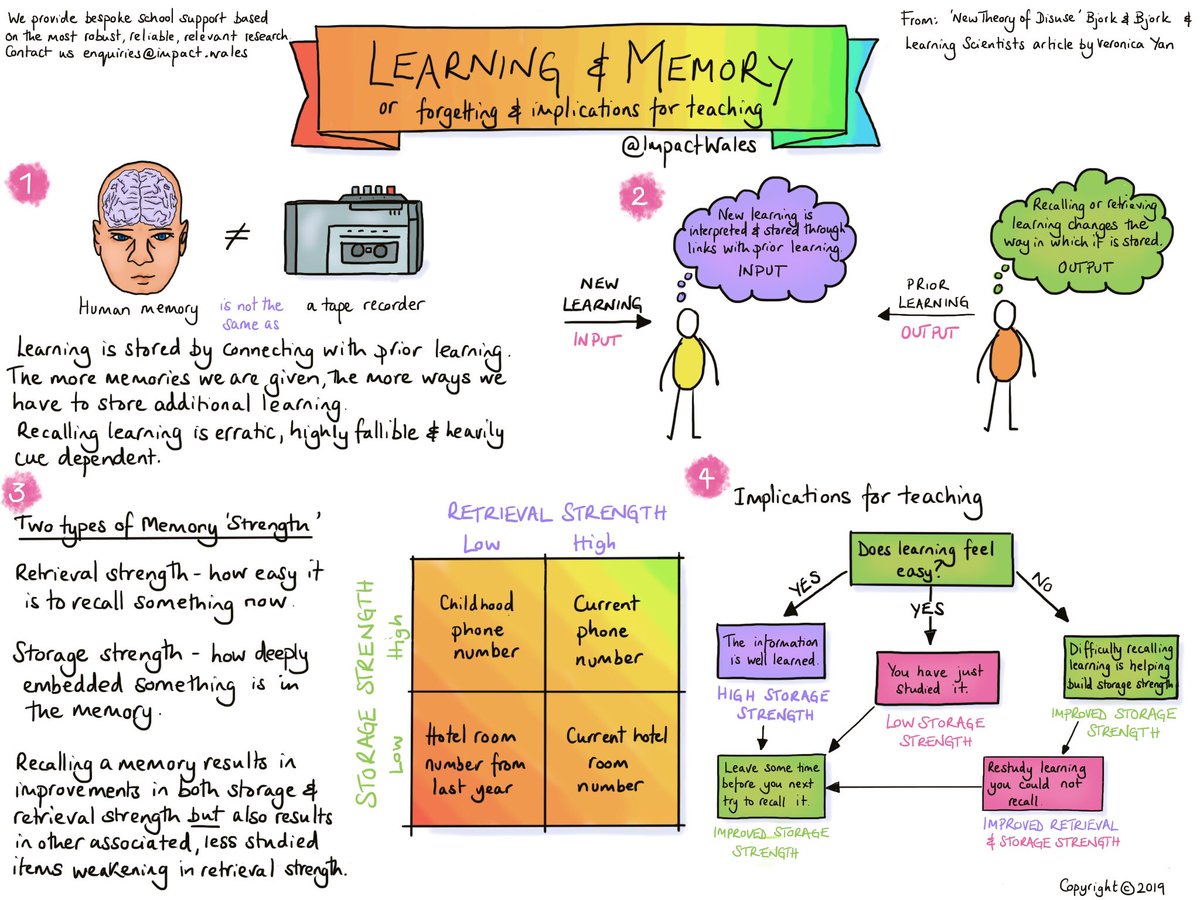 We provide bespoke school support based
on the most robust, reliable, relevant research.
Contact us enquiries@impact.wales
LEARNING & MEMORY
or forgetting & implications for teaching
@ImpactWales
From: 'New Theory of Disuse' Bjork & Bjork &
Learning Scientists article by Veronica Yan
1
≠
Human memory
is not the
same as
a tape recorder
Learning is stored by connecting with prior learning.
The more memories we are given, The more ways we
have to store additional learning.
Recalling learning is erratic, highly fallible & heavily
cue dependent.
2
New learning is
interpreted & stored through
links with prior learning.
INPUT
NEW
LEARNING
INPUT
Recalling or retrieving
learning changes the
way in which it is stored.
OUTPUT
PRIOR
LEARNING
OUTPUT
3
Two types of Memory 'Strength'
Retrieval strength - how easy it
is to recall something now.
Storage strength - how deeply
embedded something is in
the memory.
Recalling a memory results in
improvements in both storage &
retrieval strength but also results
in other associated, less studied
items weakening in retrieval strength.
RETRIEVAL STRENGTH
Low
High
STORAGE STRENGTH
High
Low
Childhood
phone
number
Current
phone
number
Hotel room
number from
last year
Current hotel
room
number
4
Implications for teaching
Does learning feel
easy?
YES
YES
NO
The information
is well learned.
HIGH STORAGE
STRENGTH
You have just
studied it.
LOW STORAGE
STRENGTH
Difficulty recalling
learning is helping
build storage strength
IMPROVED STORAGE
STRENGTH
Leave some time
before you next
try to recall it.
IMPROVED STORAGE
STRENGTH
Restudy learning
you could not
recall.
IMPROVED RETRIEVAL
& STORAGE STRENGTH
Copyright © 2019